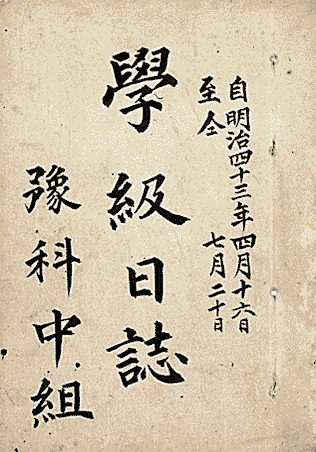 自明治四十三年四月十六日
至仝　七月二十日
學級日誌
豫科中組